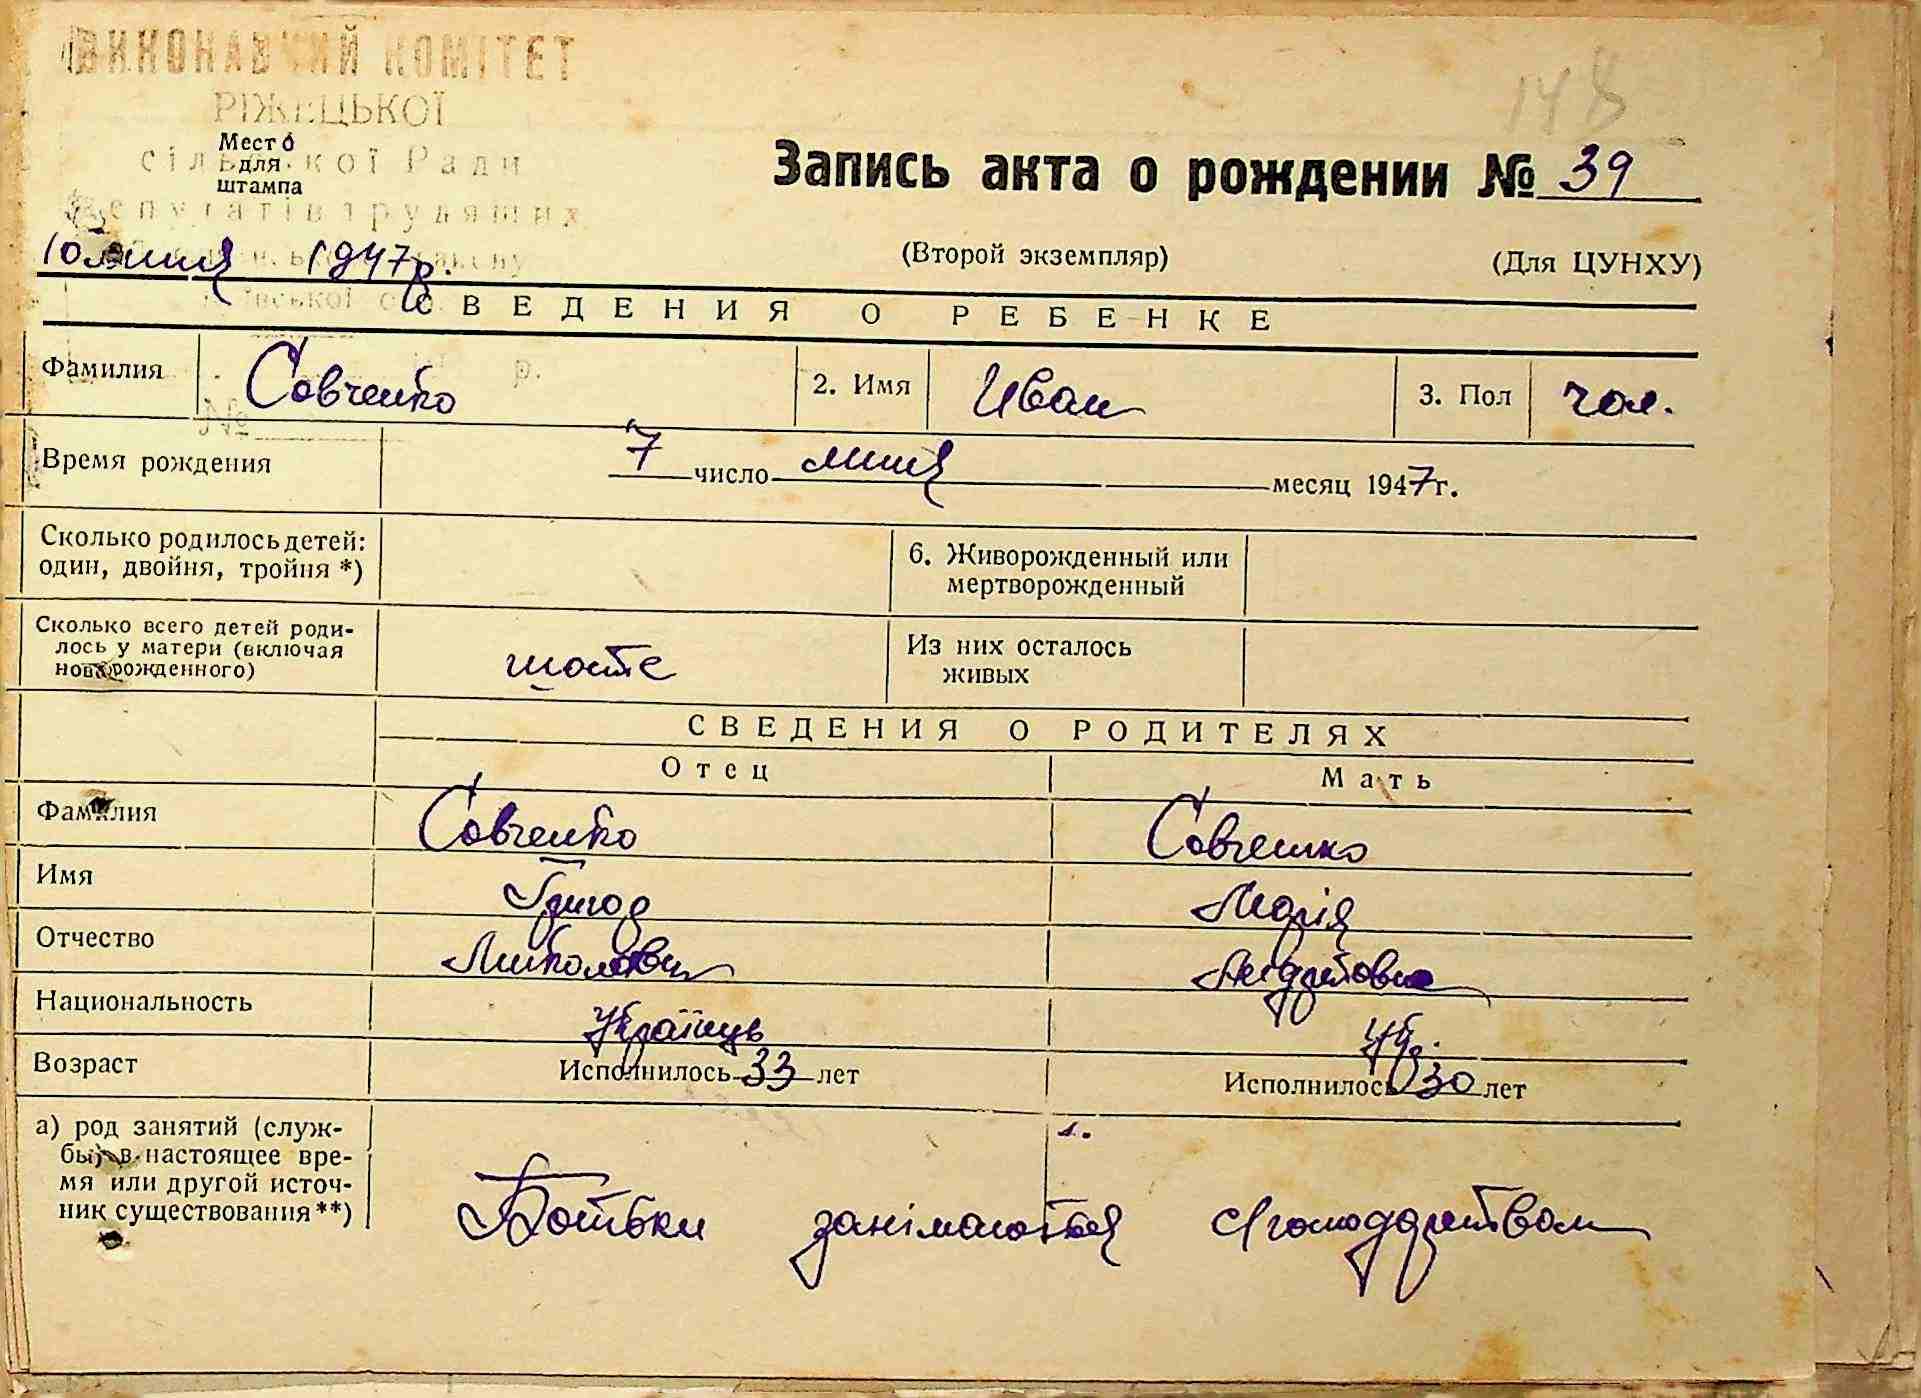 ВИКОНАВЧИЙ КОМІТЕТ
РІЖЕЦЬКОЇ
сільської Ради
депутатів трудящих
Место для штампа
148
Запись акта о рождении № 39
10 липня 1947р.
(Второй экземпляр)
(Для ЦУНХУ)
СВЕДЕНИЯ О РЕБЕНКЕ
Фамилия Савченко 2. Имя Иван 3. Пол чол.
Время рождения 7 число липня месяц 1947г.
Сколько родилось детей: один, двойня, тройня *) 6. Живорожденный или мертворожденный
Сколько всего детей родилось у матери (включая новорожденного) шосте Из них осталось живых
СВЕДЕНИЯ О РОДИТЕЛЯХ
Отец Мать
Фамилия Савченко Савченко
Имя Григор Марія
Отчество Миколович
Национальность Українць Укр.
Возраст Исполнилось 33 лет Исполнилось 30 лет
а) род занятий (службы) в настоящее время или другой источник существования **)
Батьки занімаються